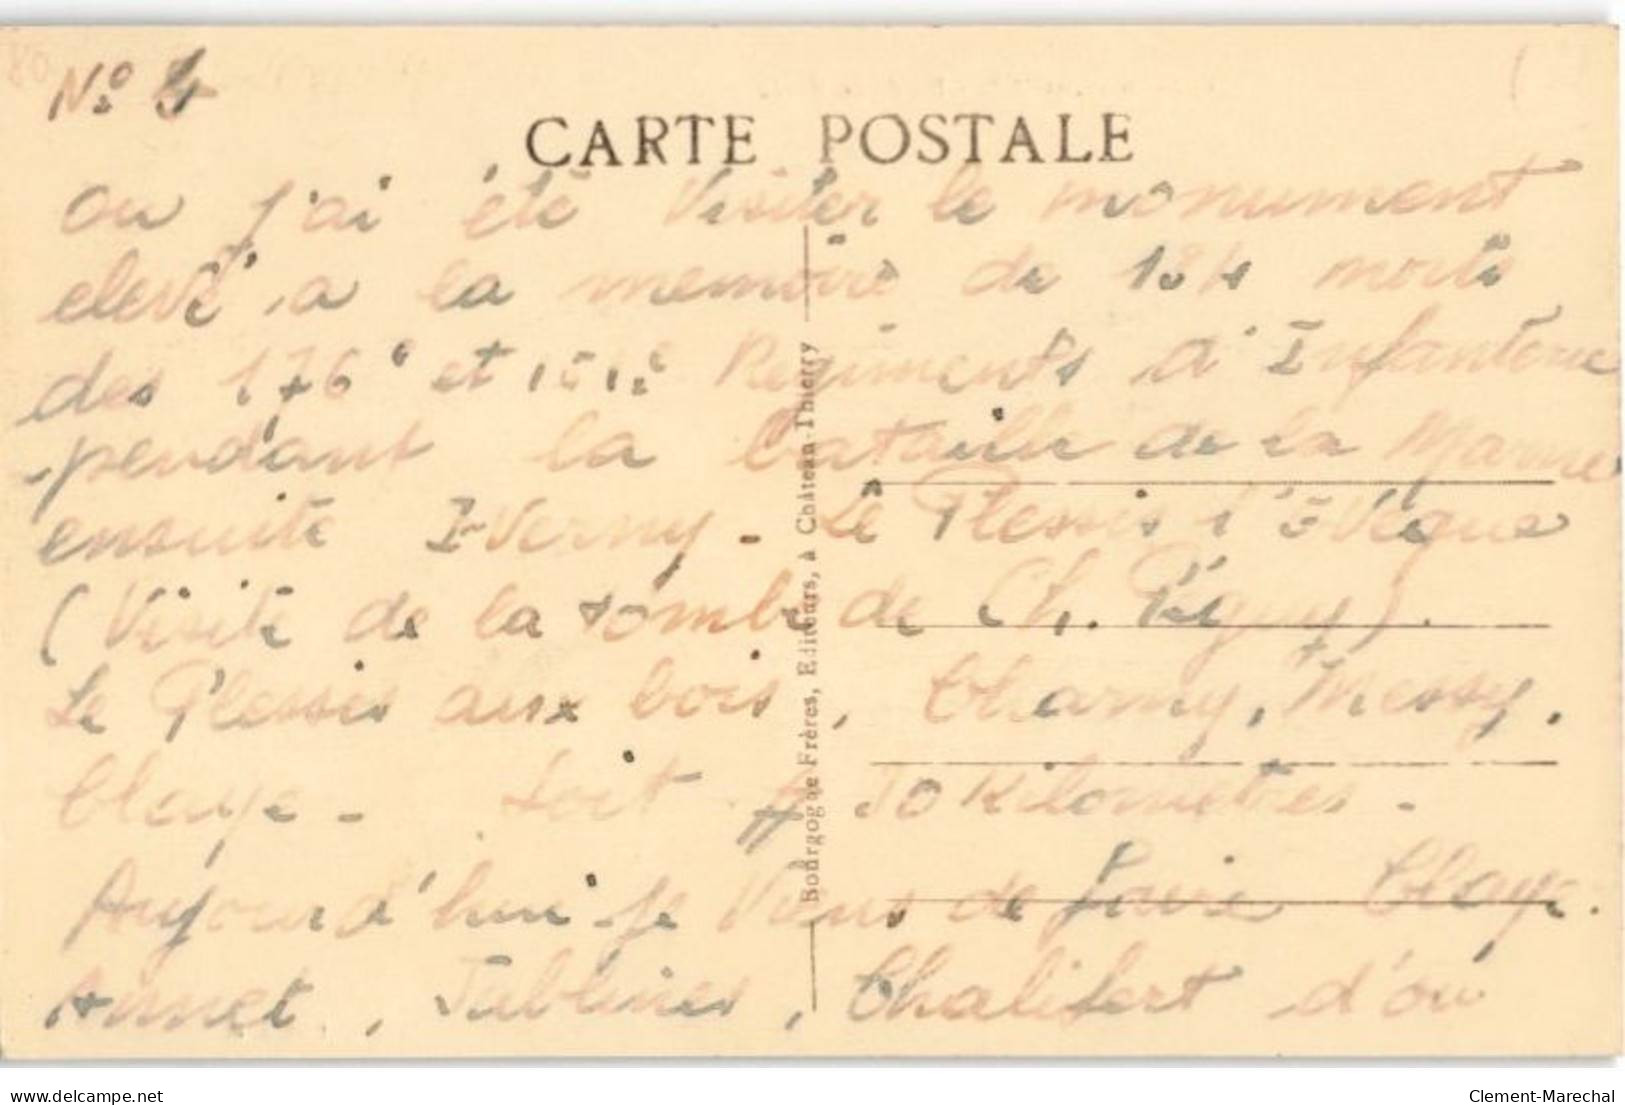 No 4
CARTE POSTALE
ou j'ai été visiter le monument
elevé a la memoire de morts
des 176e et Regiments d'Infanterie
pendant la bataille de la Marne
ensuite I-Verny - Le Plessis l'évêque
(Visite de la tombe de Ch. Péguy).
Le Plessis aux bois, Charny, Messy,
Claye - Soit 30 Kilometres -
Aujourd'hui je viens de faire Claye.
Annet, Jablines, Chalifert d'ou
Bourgogne Frères, Editeurs, à Château-Thierry
delcampe.net
Clement-Marechal